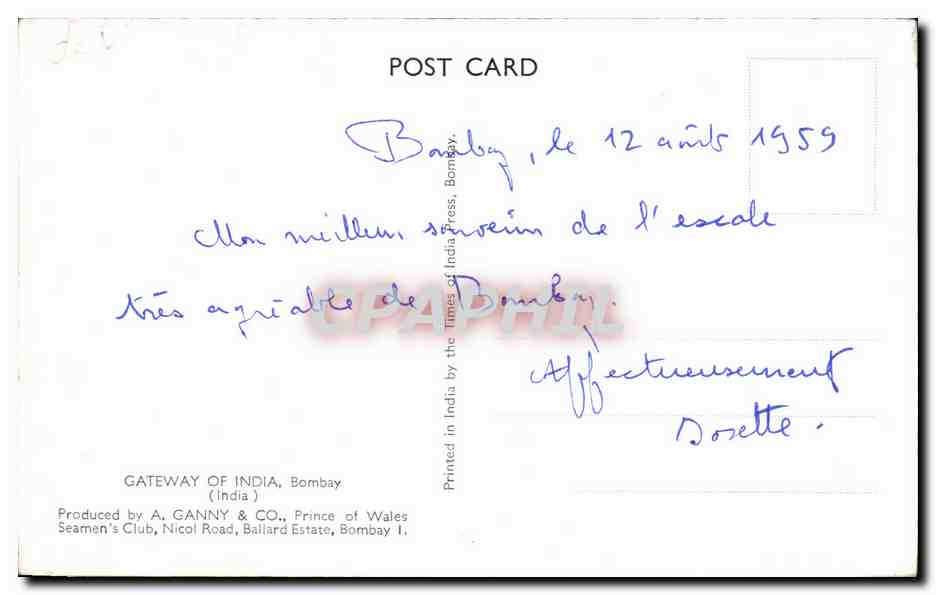 POST CARD
Bombay, le 12 août 1959
Mon meilleur souvenir de l'escale
très agréable de Bombay.
Affectueusement
Dosette.
GATEWAY OF INDIA, Bombay
(India)
Produced by A. GANNY & CO., Prince of Wales
Seamen's Club, Nicol Road, Ballard Estate, Bombay 1.
Printed in India by the Times of India Press, Bombay.
CPAPHIL